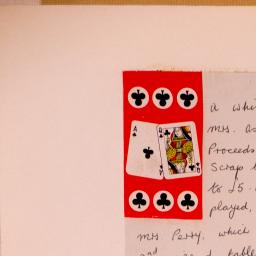 A
Q
Q
a whi
Mrs. as
Proceeds
Scrap
to £5.
played,
Mrs. Perry, which
and
table